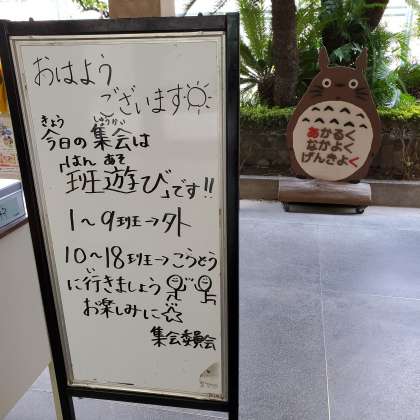 おはよう
ございます
きょう しゅうかい
今日の集会は
はん あそ
「班遊び」です!!
1~9班→外
10~18班→こうどう
い
に行きましょう
お楽しみに☆
集会委員会
あかるく
なかよく
げんきよく